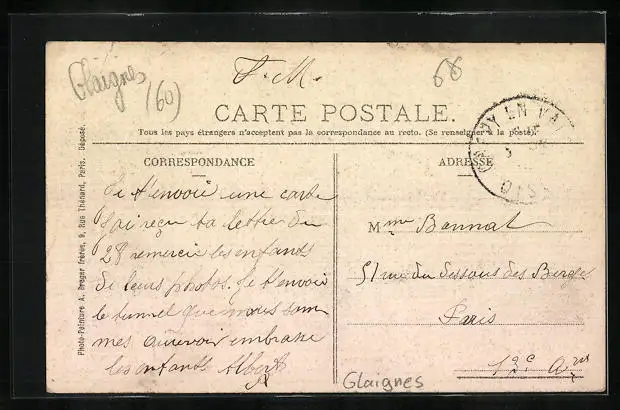 Glaignes
(60)
F.M.
68
CARTE POSTALE.
Tous les pays étrangers n'acceptent pas la correspondance au recto. (Se renseigner à la poste).
CRÉPY EN VAL
OISE
CORRESPONDANCE
ADRESSE
Je t'envoie une carte
J'ai reçu ta lettre du
28 remercie les enfants
de leurs photos. Je t'envoie
le tunnel que nous som
mes au revoir embrasse
les enfants Albert
Mme Bonnat
51 rue du Dessous des Berge
Paris
12e Arr
Glaignes
Photo-Peinture A. Breger frères, 9, Rue Thénard, Paris. Déposé.